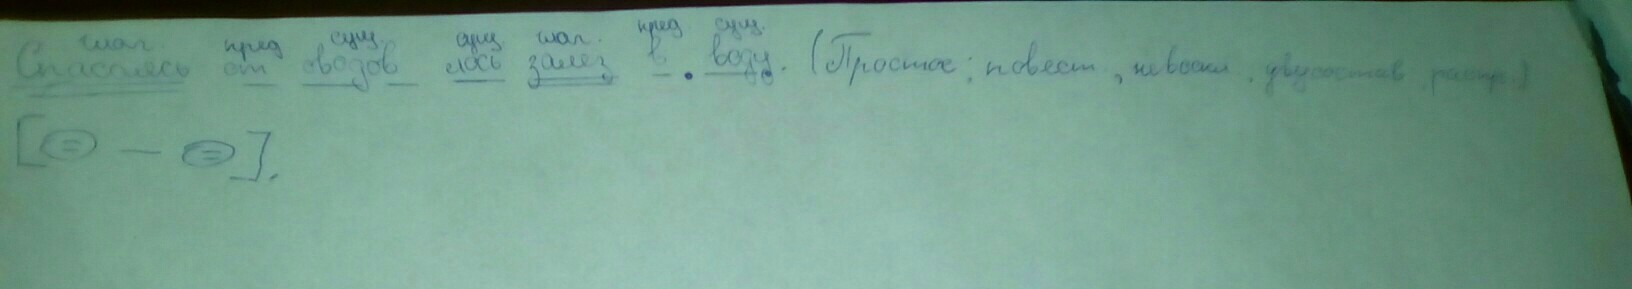 шаг. пред сущ. сущ шаг. пред сущ.
Спасаясь от оводов лось залез в воду. (Простое; повест, невоскл, двусостав, распр.)
[= — =].